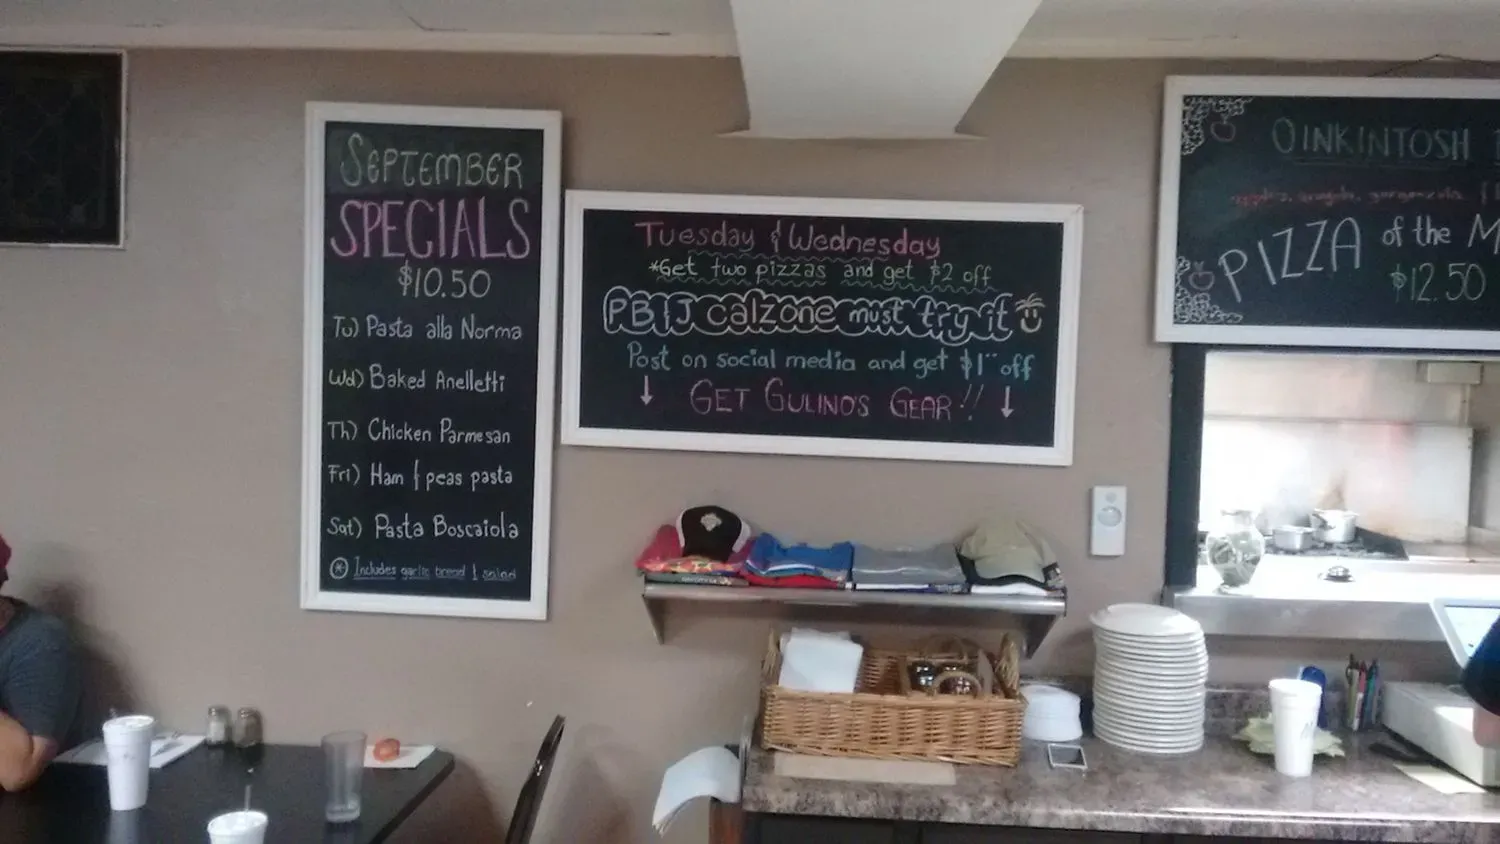 SEPTEMBER
SPECIALS
$10.50
Tu) Pasta alla Norma
Wd) Baked Anelletti
Th) Chicken Parmesan
Fri) Ham & peas pasta
Sat) Pasta Boscaiola
* Includes garlic bread & salad
Tuesday & Wednesday
*Get two pizzas and get $2 off
PB&J calzone must try it
Post on social media and get $1 off
↓ GET GULINO'S GEAR!! ↓
OINKINTOSH
gorgonzola
PIZZA of the M
$12.50